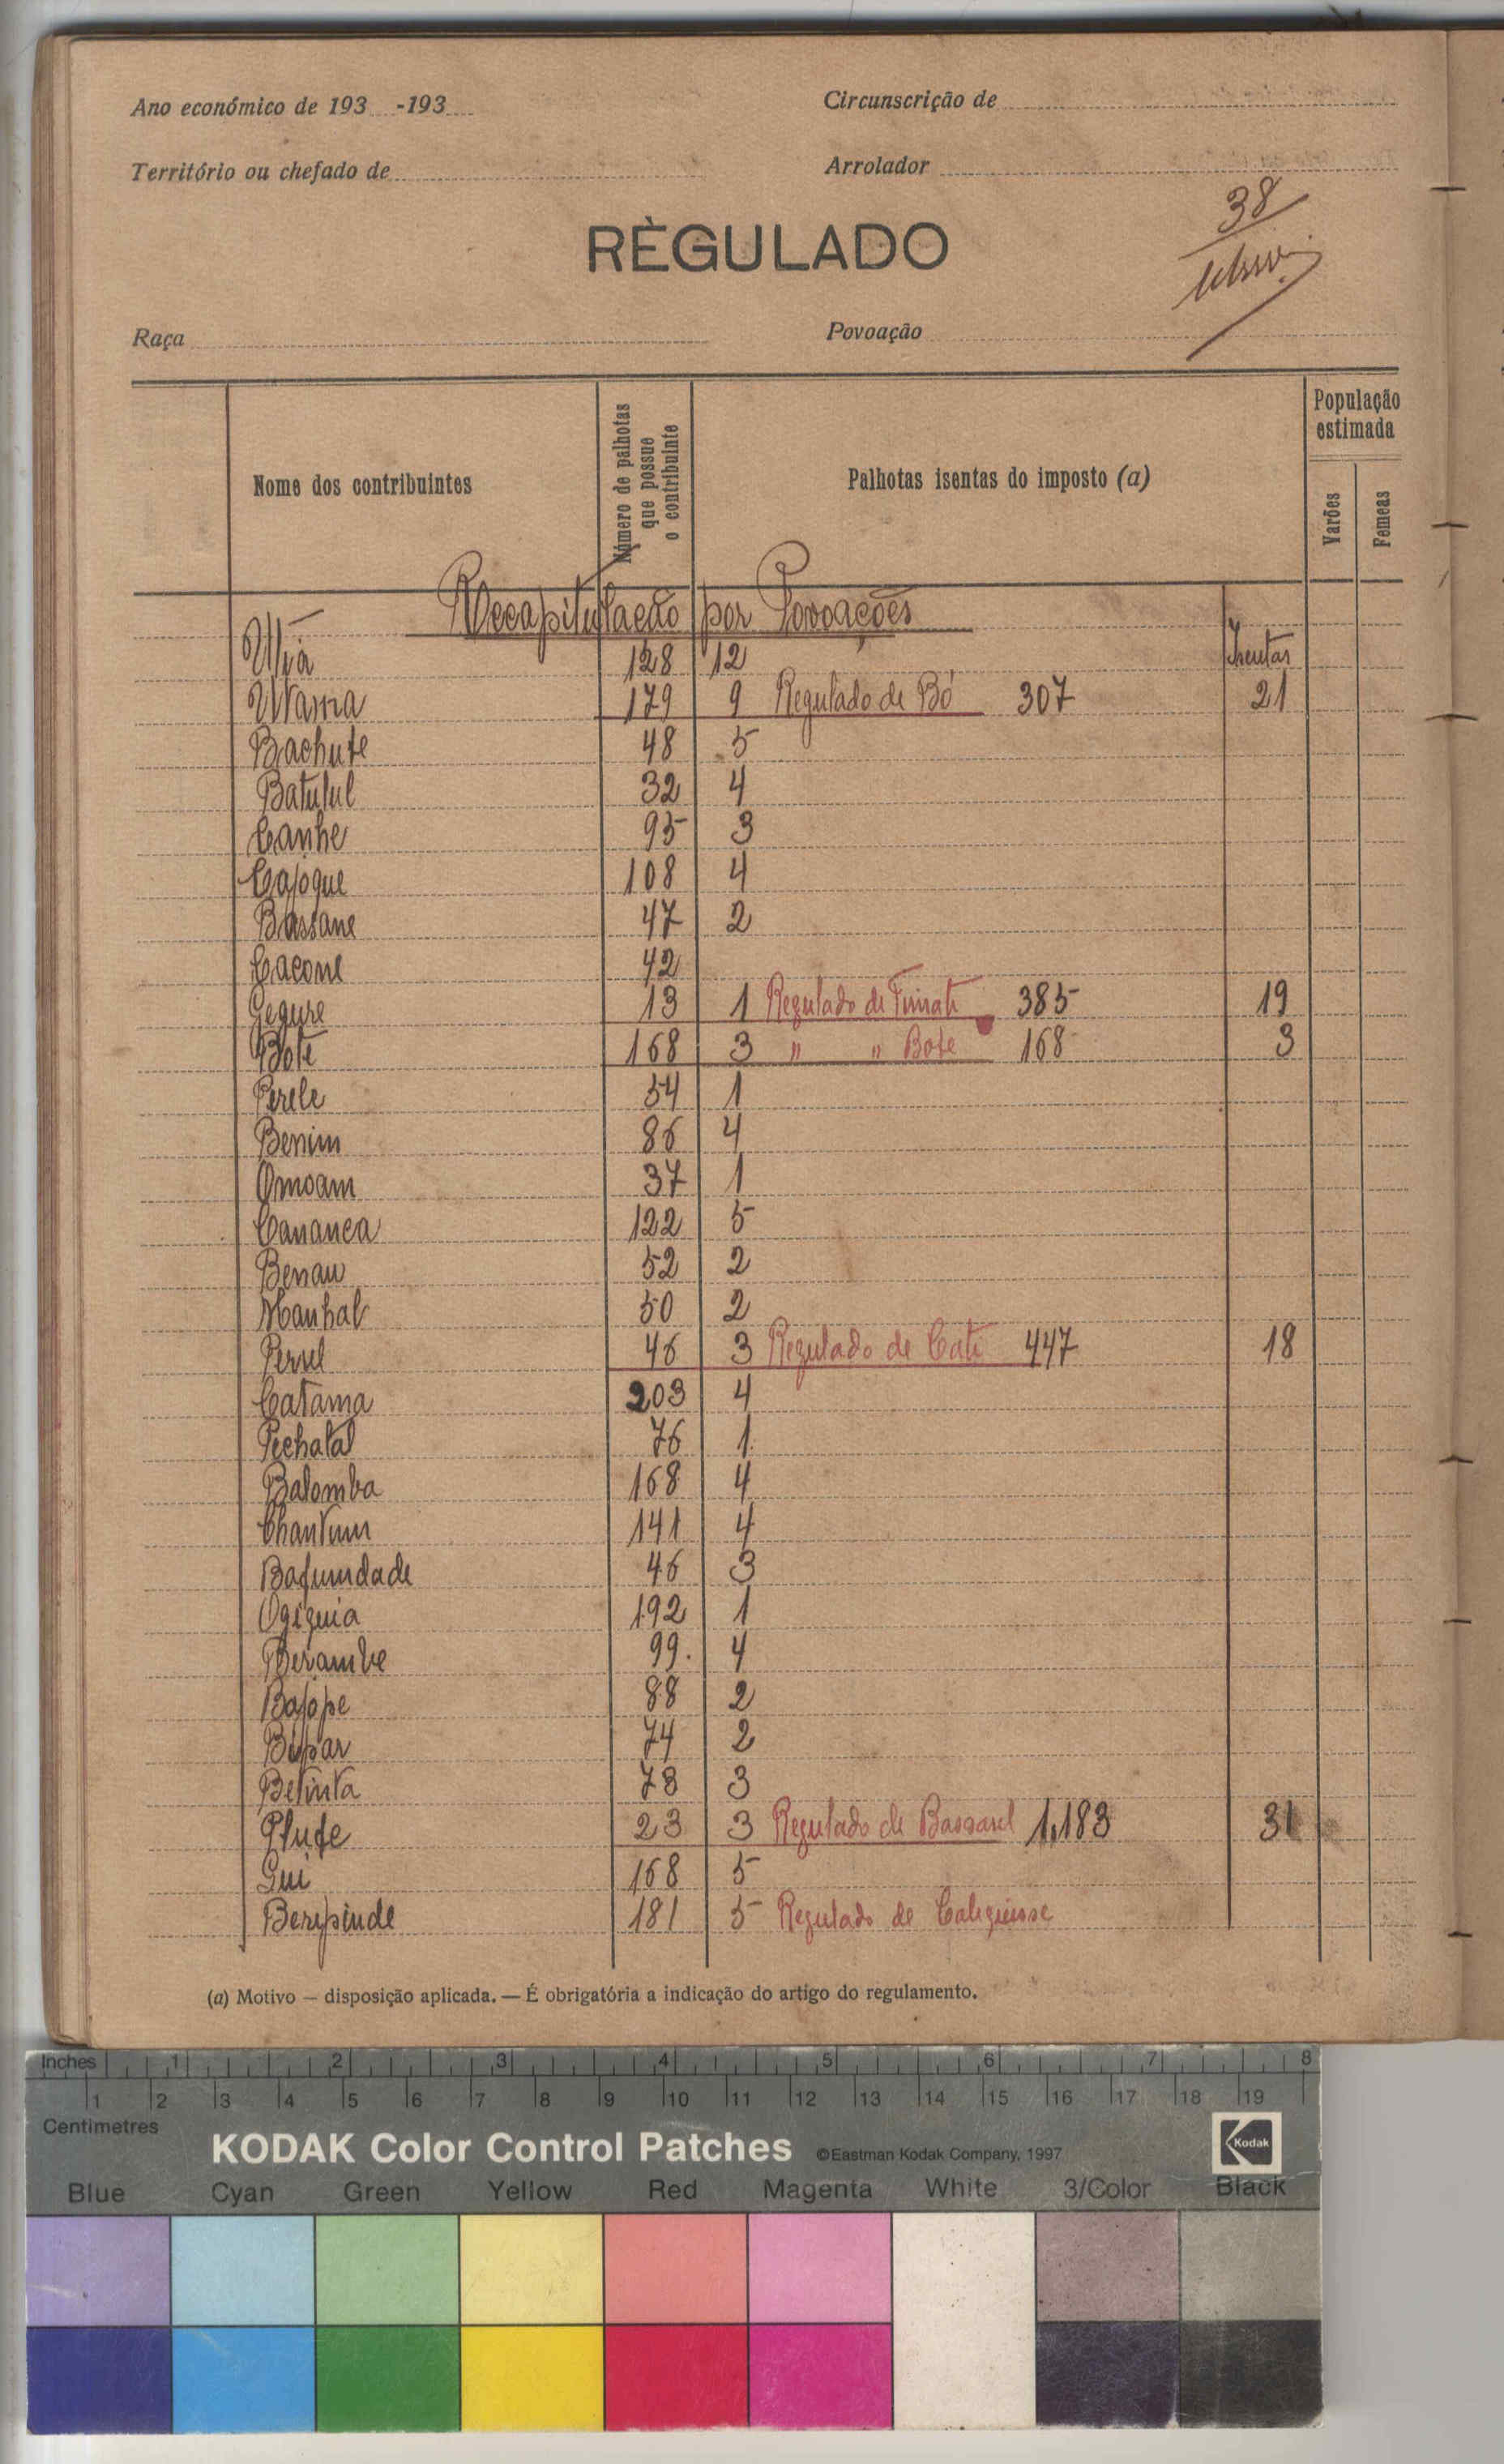 Ano económico de 193 -193
Circunscrição de
Território ou chefado de
Arrolador
38
RÈGULADO
Raça
Povoação
Nome dos contribuintes
Número de palhotas que possue o contribuinte
Palhotas isentas do imposto (a)
População estimada
Varões
Femeas
Recapitulação por Povoações
128 12 Isentas
179 9 Regulado de Bó 307 21
Bachute 48 5
Batulul 32 4
Canhe 95 3
Cajoque 108 4
Bassane 47 2
Cacone 42
13 1 Regulado de 385 19
Bote 168 3 " " Bote 168 3
Perele 54 1
Benim 86 4
Omoam 37 1
Cananea 122 5
Benau 52 2
Manhal 50 2
46 3 Regulado de Cati 447 18
Catama 203 4
Pechatal 76 1
Balomba 168 4
Chantum 141 4
Bafundade 46 3
192 1
Berambe 99 4
Bajope 88 2
74 2
Betinta 78 3
23 3 Regulado de Bassarel 1.183 31
168 5
181 5 Regulado de
(a) Motivo — disposição aplicada. — É obrigatória a indicação do artigo do regulamento.
Inches 1 2 3 4 5 6 7 8
1 2 3 4 5 6 7 8 9 10 11 12 13 14 15 16 17 18 19
Centimetres
KODAK Color Control Patches ©Eastman Kodak Company, 1997 Kodak
Blue Cyan Green Yellow Red Magenta White 3/Color Black